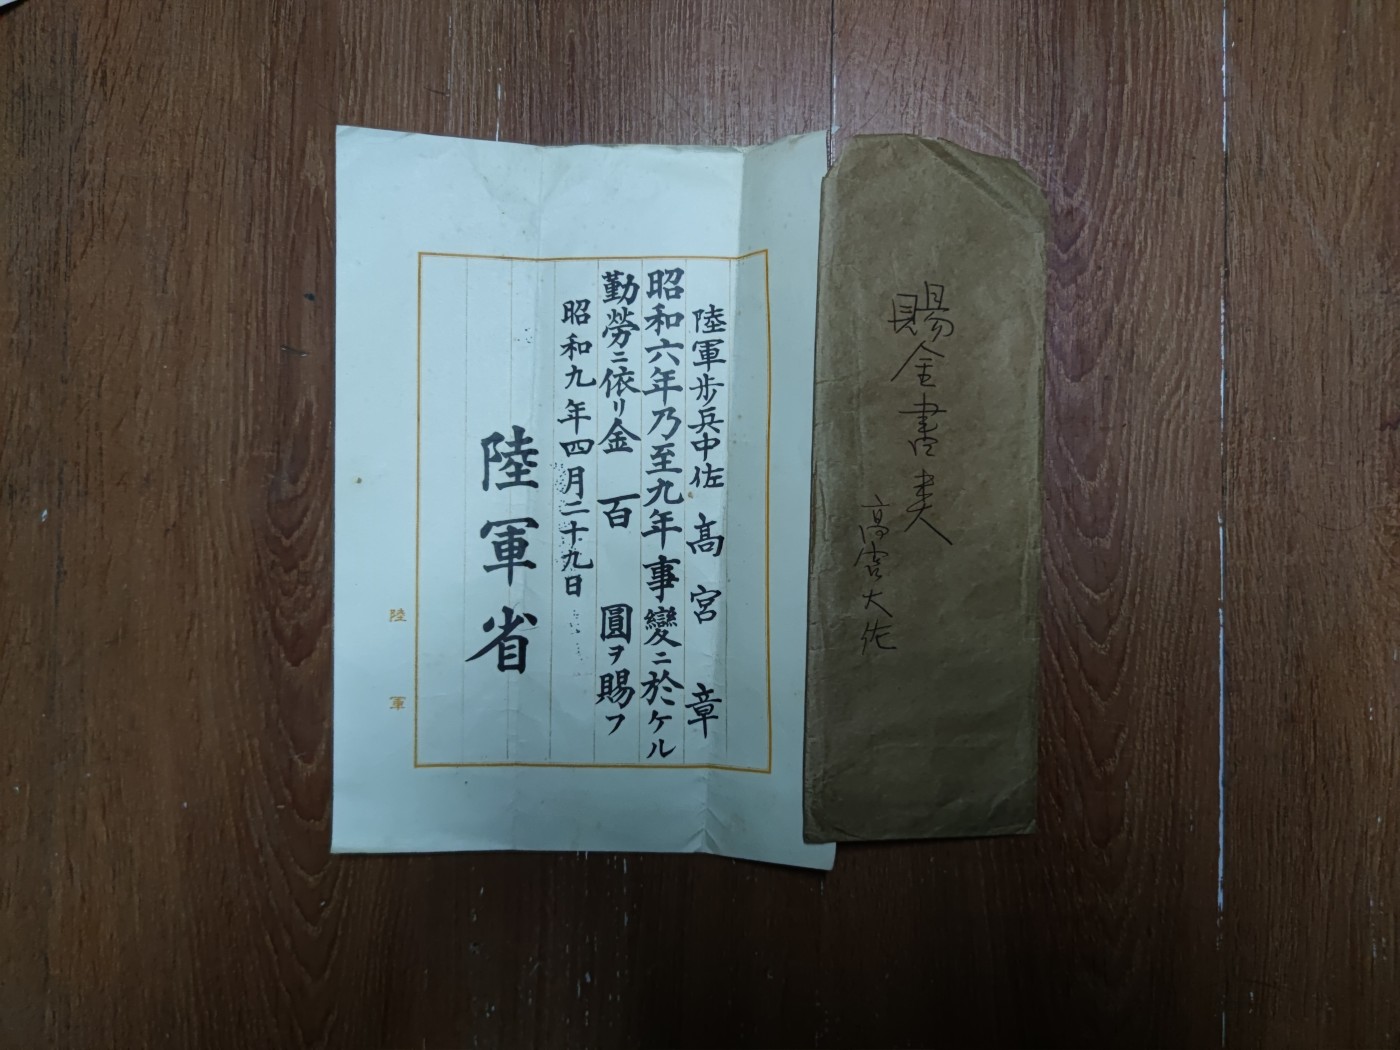 賜金書類
高宮大佐
陸軍歩兵中佐 髙宮章
昭和六年乃至九年事變ニ於ケル
勤勞ニ依リ金百圓ヲ賜フ
昭和九年四月二十九日
陸軍省
陸軍